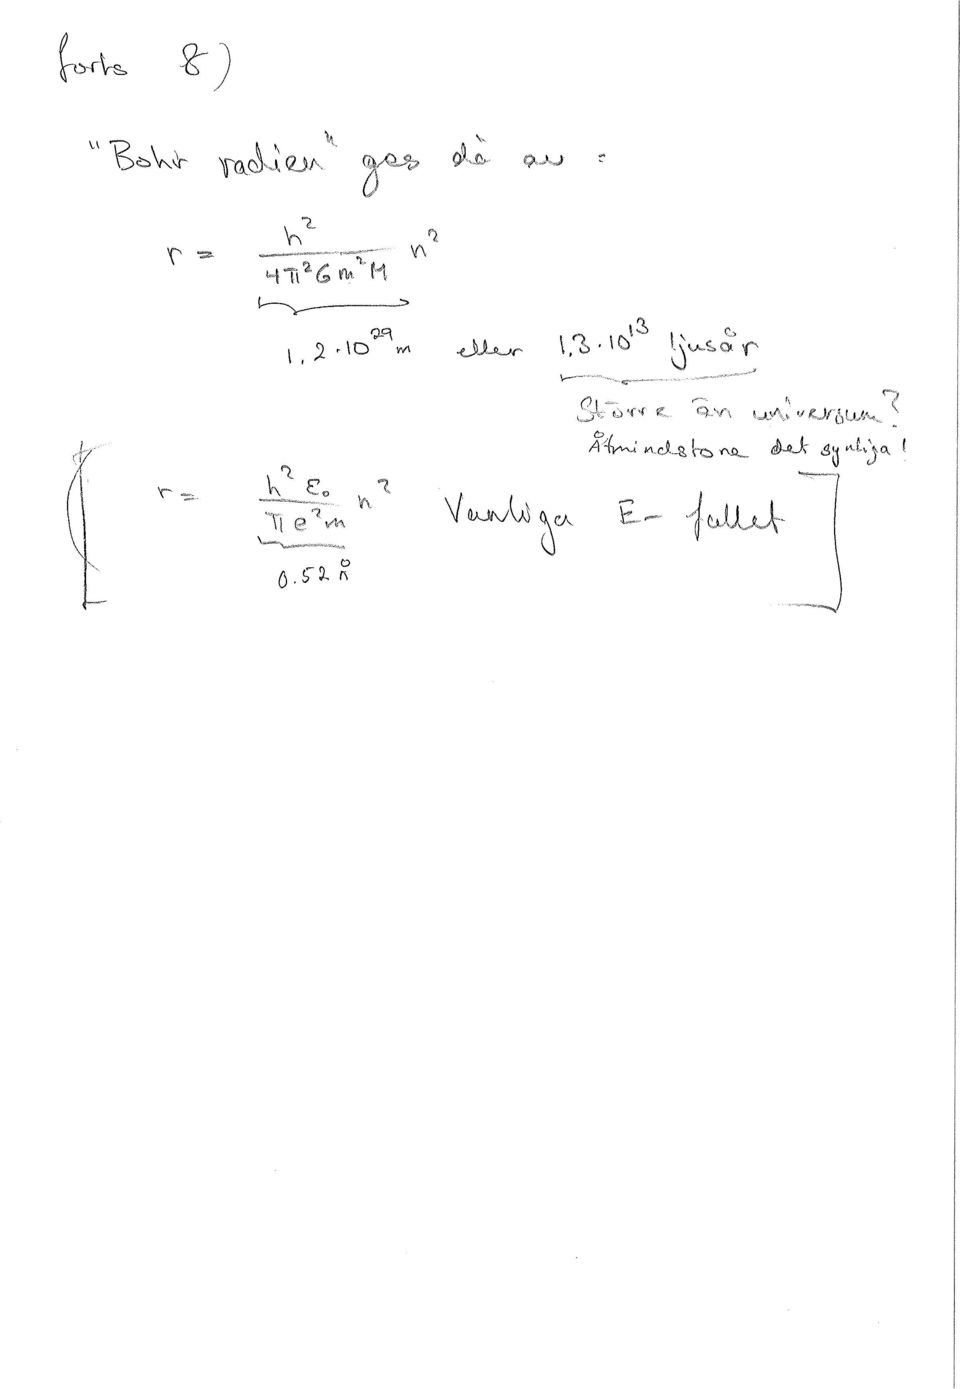 forts 8)
"Bohr radien" ges då av :
r = h² / 4π²Gm²M n²
1,2·10²⁹ m eller 1,3·10¹³ ljusår
Större än universum?
Åtmindstone det synliga!
r = h² ε₀ / π e² m n² Vanliga E- fallet
0.52 Å